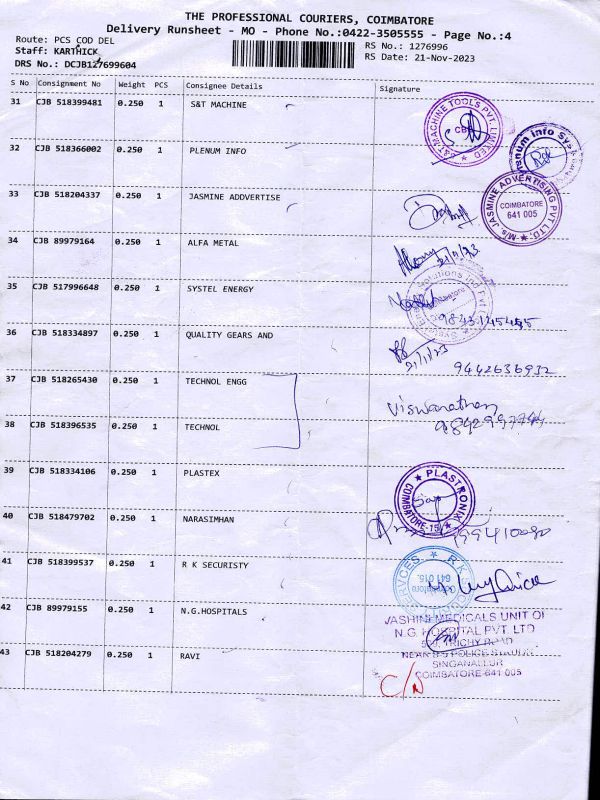 THE PROFESSIONAL COURIERS, COIMBATORE
Delivery Runsheet - MO - Phone No.:0422-3505555 - Page No.:4
Route: PCS COD DEL
RS No.: 1276996
Staff: KARTHICK
RS Date: 21-Nov-2023
DRS No.: DCJB127699604
S No Consignment No Weight PCS Consignee Details Signature
31 CJB 518399481 0.250 1 S&T MACHINE
S&T MACHINE TOOLS PVT. LIMITED
CB
32 CJB 518366002 0.250 1 PLENUM INFO
33 CJB 518204337 0.250 1 JASMINE ADDVERTISE
M/s. JASMINE ADVERTISING PVT LTD.
COIMBATORE
641 005
34 CJB 89979164 0.250 1 ALFA METAL
21/11/23
35 CJB 517996648 0.250 1 SYSTEL ENERGY
36 CJB 518334897 0.250 1 QUALITY GEARS AND
21/11/23
9442636932
37 CJB 518265430 0.250 1 TECHNOL ENGG
Viswanathan
38 CJB 518396535 0.250 1 TECHNOL
39 CJB 518334106 0.250 1 PLASTEX
PLASTRONIX
COIMBATORE-15
40 CJB 518479702 0.250 1 NARASIMHAN
41 CJB 518399537 0.250 1 R K SECURISTY
641 015.
42 CJB 89979155 0.250 1 N.G.HOSPITALS
JASHINI MEDICALS UNIT OF
N.G. HOSPITAL PVT. LTD
TRICHY ROAD
SINGANALLUR
COIMBATORE-641 005
43 CJB 518204279 0.250 1 RAVI
C/N